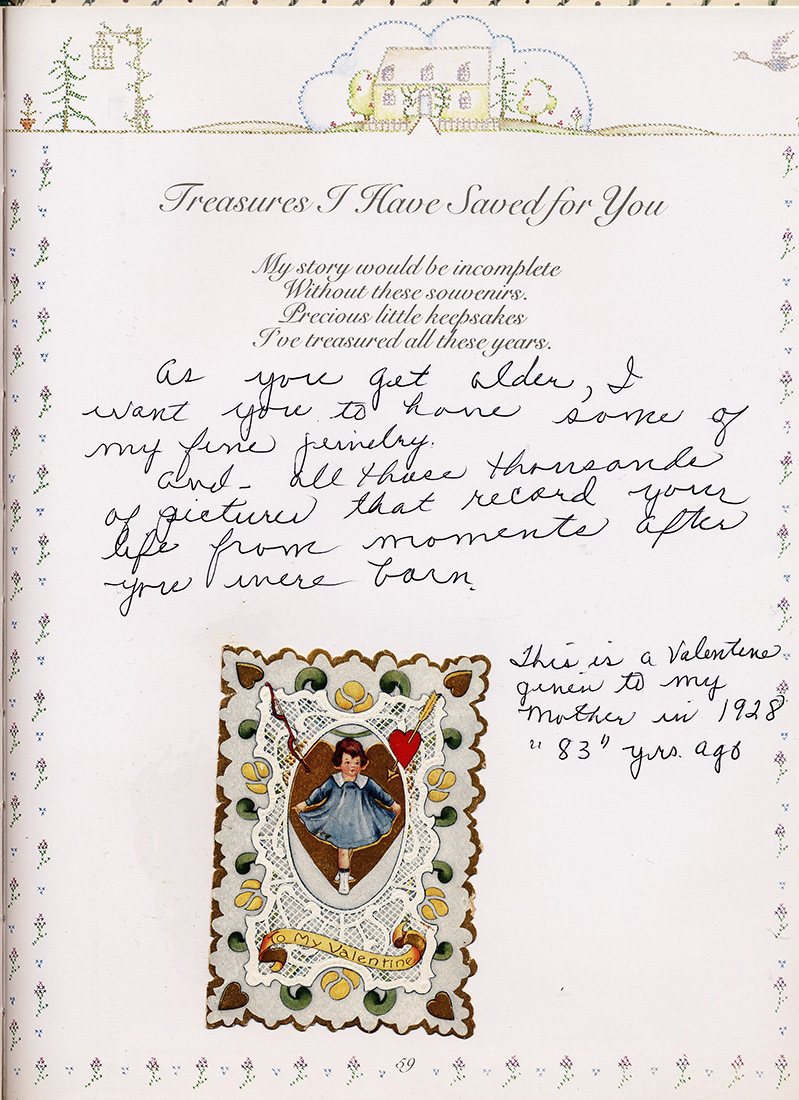 Treasures I Have Saved for You
My story would be incomplete
Without these souvenirs.
Precious little keepsakes
I've treasured all these years.
As you get older, I
want you to have some of
my fine jewelry.
And - all those thousands
of pictures that record your
life from moments after
you were born.
This is a Valentine
given to my
Mother in 1928
"83" yrs. ago
To My Valentine
59